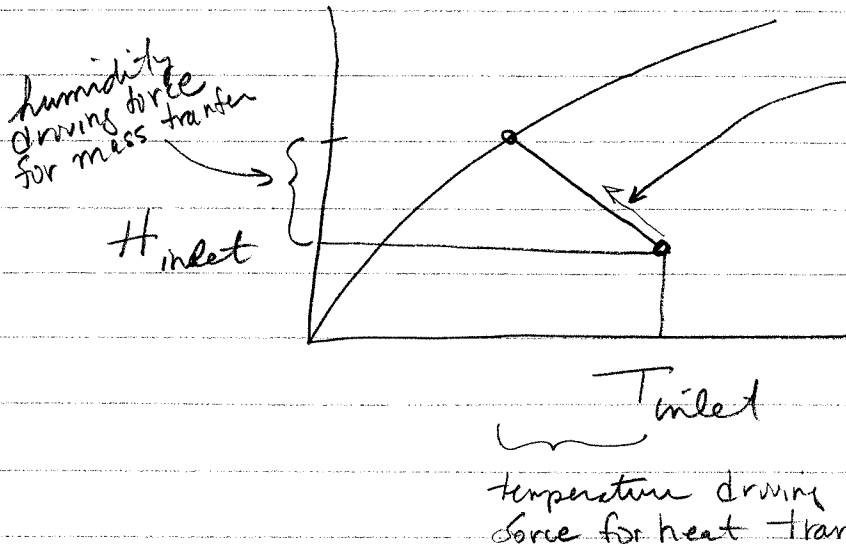 humidity
driving force
for mass tranfer
H inlet
T inlet
temperature driving
force for heat tran